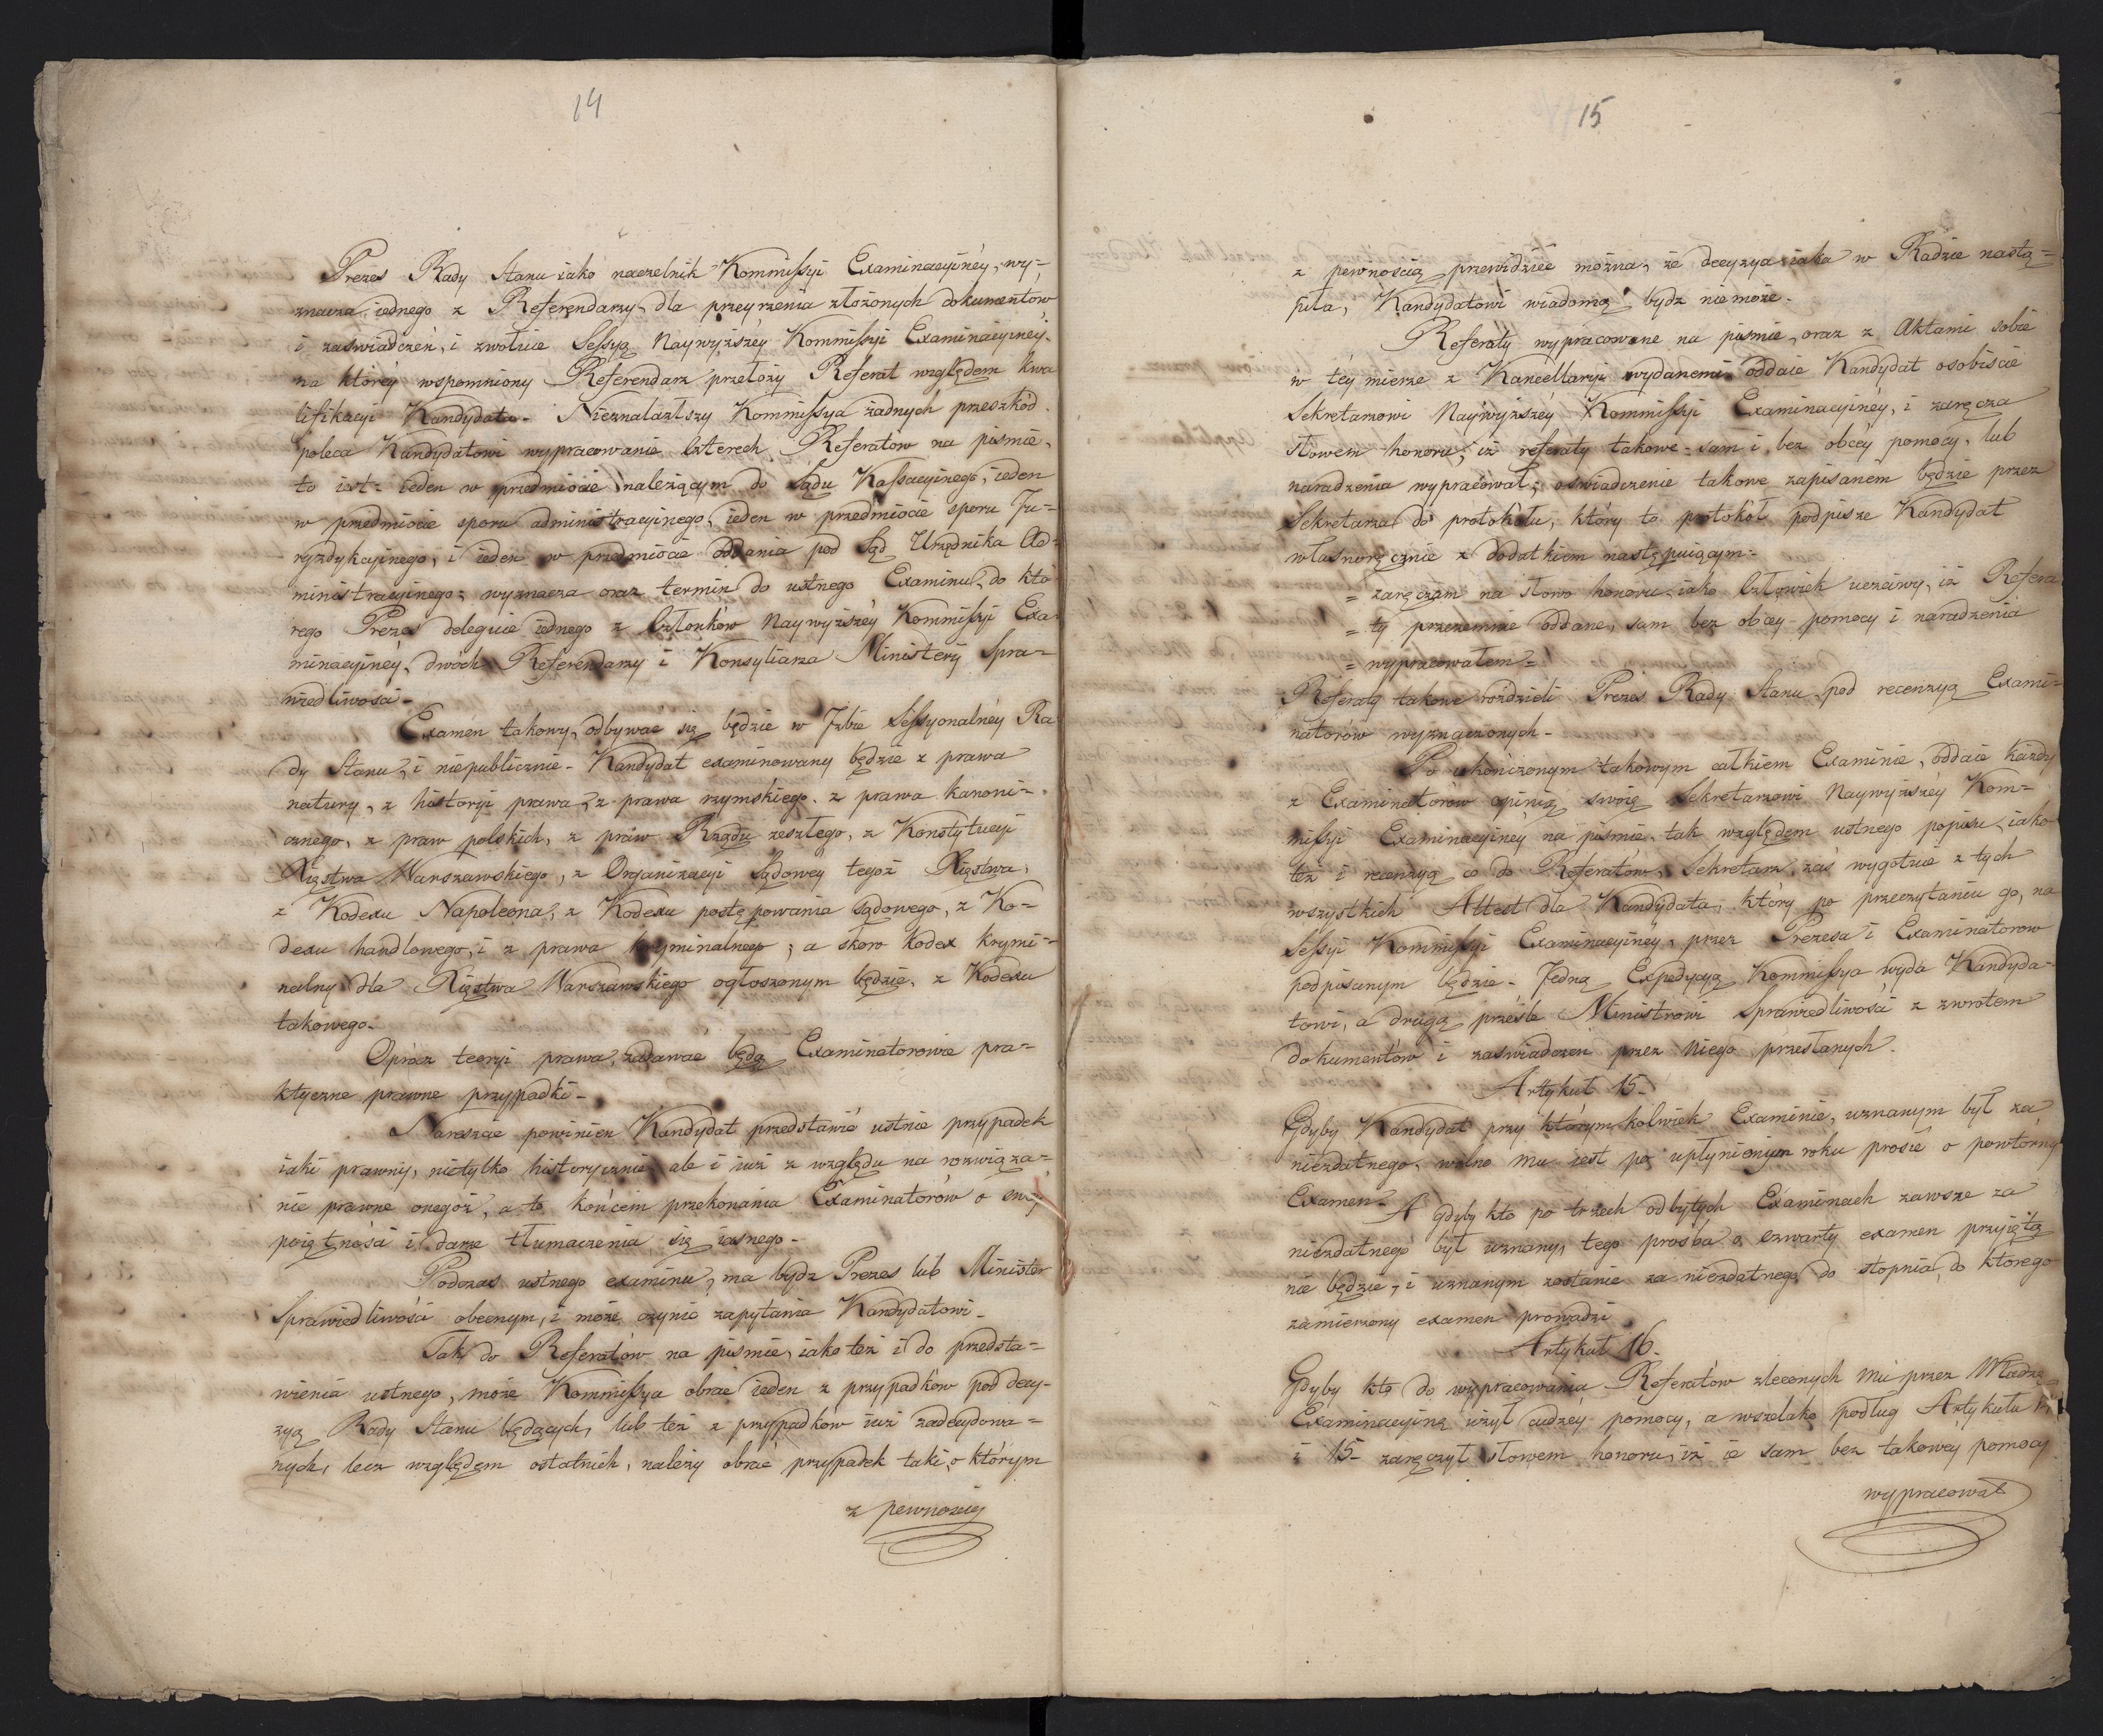 14
Prezes Rady Stanu iako naczelnik Kommissyi Examinacyinéy, wy-
znacza iednego z Referendarzy, dla przeyrzenia złożonych dokumentow
i zaswiadczeń, i zwołuie Sessyą Naywyższéy Kommissyi Examinacyinéy,
na któréy wspomniony Referendarz przełoży Referat względem kwa
lifikacyi Kandydata. Nieznalazłszy Kommissya żadnych przeszkód
poleca Kandydatowi wypracowanie czterech Referatow na pismie,
to iest: ieden w przedmiocie należącym do Sądu Kassacyinego, ieden
w przedmiocie sporu administracyinego, ieden w przedmiocie sporu Ju=
ryzdykcyinego, i ieden w przedmiocie oddania pod Sąd Urzędnika Ad=
ministracyinego; wyznacza oraz termin do ustnego Examinu, do któ
rego Prezes deleguie iednego z Członków Naywyższéy Kommissyi Exa-
minacyinéy, dwóch Referendarzy i Konsyliarza Ministeryi Spra=
wiedliwosci.
Examen takowy, odbywać się będzie w Izbie Sessyonalnéy Ra
dy Stanu, i niepublicznie. Kandydat examinowany będzie z prawa
natury, z historyi prawa, z prawa rzymskiego, z prawa kanoni=
cznego, z praw polskich, z praw Rządu zeszłego, z Konstytucyi
Xięstwa Warszawskiego, z Organizacyi Sądowéy tegoż Xięstwa,
z Kodexu Napoleona, z Kodexu postępowania sądowego, z Ko=
dexu handlowego, i z prawa kryminalnego; a skoro Kodex krymi=
nalny dla Xięstwa Warszawskiego ogłoszonym będzie, z Kodexu
takowego.
Oprócz teoryi prawa, zadawać będą Examinatorowie pra=
ktyczne prawne przypadki.
Nareszcie powinien Kandydat przedstawić ustnie przypadek
iaki prawny, nietylko historycznie ale i iuż z względu na rozwiąza=
nie prawne onegoż, a to końcem przekonania Examinatorów o swéy
poiętności i darze tłumaczenia się iasnego.
Podczas ustnego examinu, ma bydz Prezes lub Minister
Sprawiedliwości obecnym, i może czynić zapytania Kandydatowi.
Tak do Referatów na pismie, iako też i do przedsta=
wienia ustnego, może Kommissya obrać ieden z przypadków pod decy-
zyą Rady Stanu będących, lub też z przypadkow iuż zadecydowa=
nych, lecz względem ostatnich, należy obrać przypadek taki, o którym
z pewnością
15
z pewnością przewidzieć można, że decyzya iaka w Radzie nastą=
piła, Kandydatowi wiadomą bydz niemoże.
Referaty wypracowane na pismie, oraz z Aktami sobie
w téy mierze z Kancellaryi wydanemi oddaie Kandydat osobiscie
Sekretarzowi Naywyższéy Kommissyi Examinacyinéy, i zaręcza
słowem honoru, iż referaty takowe sam i bez obcéy pomocy, lub
naradzenia wypracował; oswiadczenie takowe zapisanem będzie przez
Sekretarza do protokołu, który to protokoł podpisze Kandydat
własnoręcznie z dodatkiem następuiącym:
= zaręczam na słowo honoru, iako Człowiek uczciwy, iż Refera
= ty przezemnie oddane, sam bez obcéy pomocy i naradzenia
= wypracowałem =
Referaty takowe rozdzieli Prezes Rady Stanu, pod recenzyą Exami=
natorów wyznaczonych.
Po ukończonym takowym całkiem Examinie, oddaie każdy
z Examinatorów opinią swoią Sekretarzowi Naywyższéy Kom=
missyi Examinacyinéy na pismie tak względem ustnego popisu, iako
też i recenzyą co do Referatów. Sekretarz zaś wygotuie z tych
wszystkich Attest dla Kandydata, który po przeczytaniu go, na
Sessyi Kommissyi Examinacyinéy, przez Prezesa i Examinatorow
podpisanym będzie. Jedną Expedycyą Kommissya wyda Kandyda=
towi, a drugą prześle Ministrowi Sprawiedliwości z zwrotem
dokumentów i zaswiadczeń przez niego przesłanych.
Artykuł 15.
Gdyby Kandydat przy którymkolwiek Examinie, uznanym był za
niezdatnego, wolno mu iest po upłynionym roku prosić o powtórny
Examen. A gdyby kto po trzech odbytych Examinach zawsze za
niezdatnego był uznany, tego prosba o czwarty examen przyiętą
nie będzie, i uznanym zostanie za niezdatnego do stopnia, do którego
zamierzony examen prowadzi.
Artykuł 16.
Gdyby kto do wypracowania Referatów zleconych mu przez Władzę
Examinacyiną użył cudzéy pomocy, a wszelako podług Artykułu
i 15 zaręczył słowem honoru, iż ie sam bez takowéy pomocy
wypracował